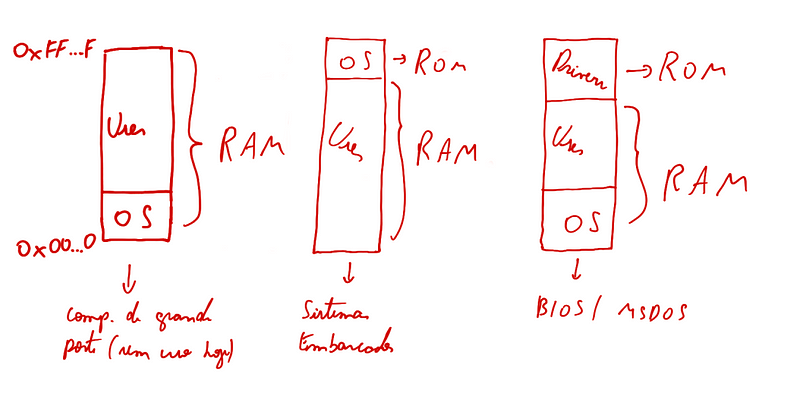 0xFF...F
User
RAM
OS
0x00...0
comp. de grande
porte (sem uso hoje)
OS → ROM
User
RAM
Sistemas
Embarcados
Drivers → ROM
User
RAM
OS
BIOS / MSDOS